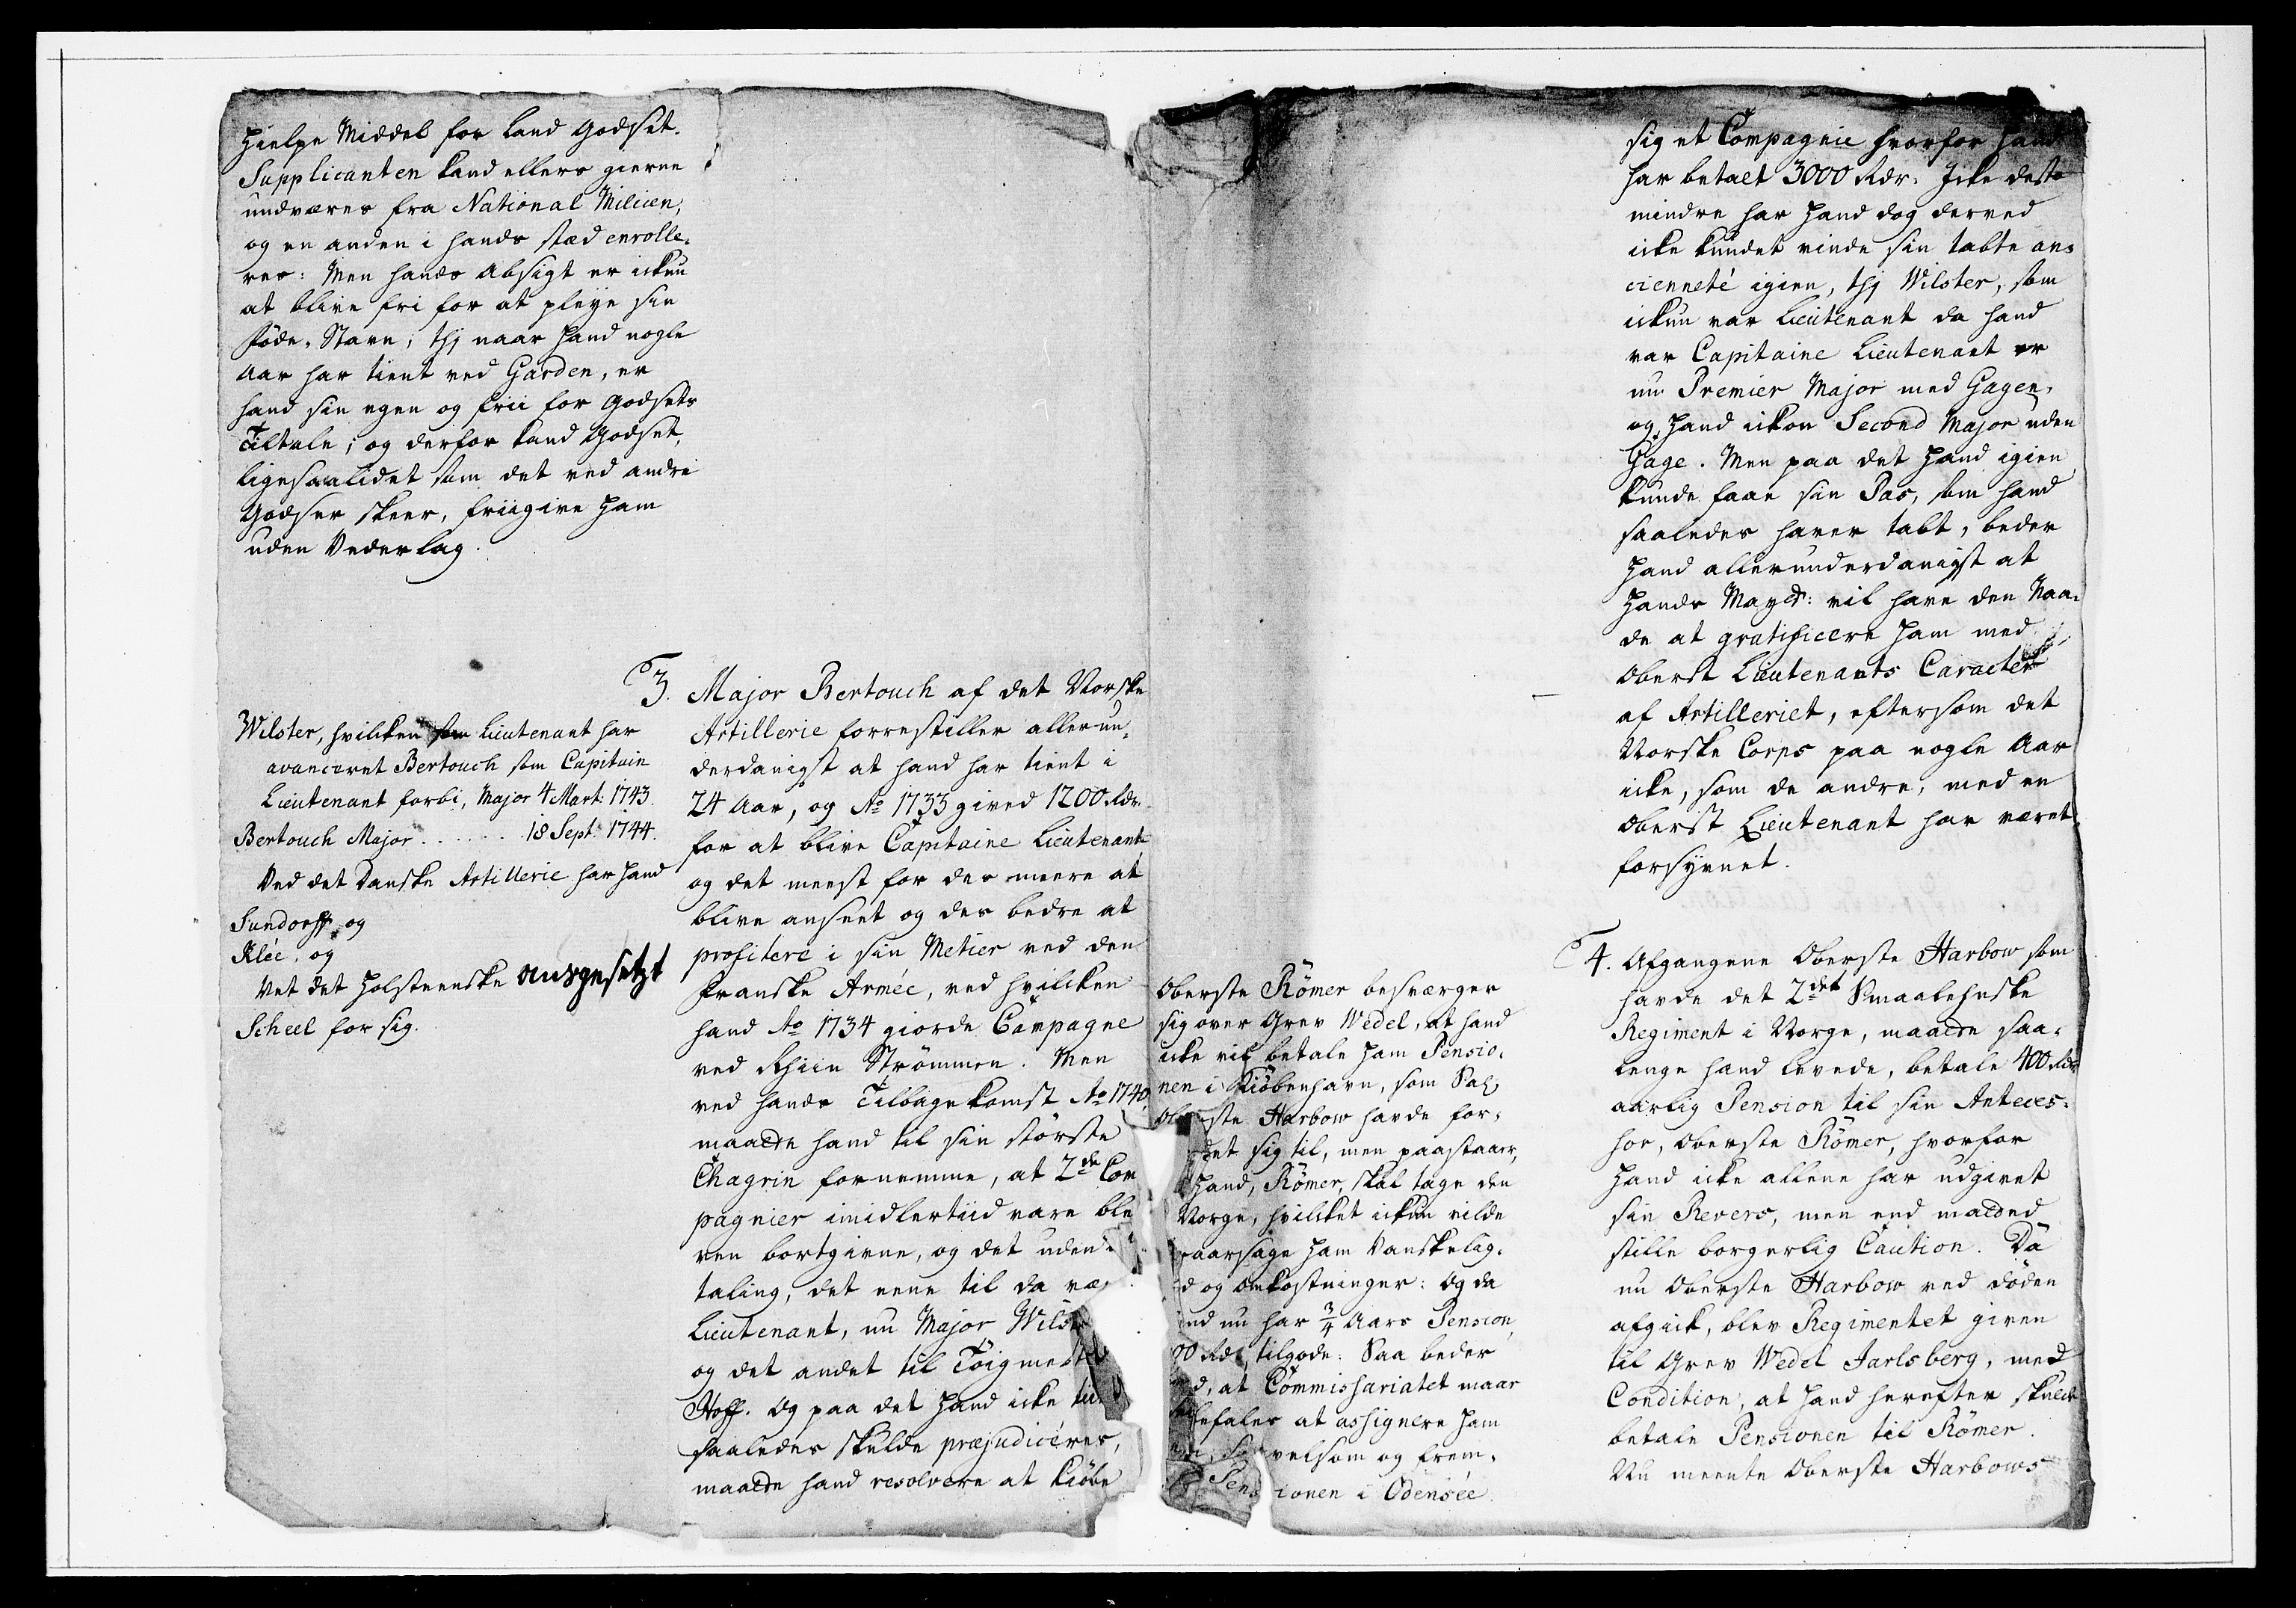 hielpe Middel for land Godset.
Supplicanten kand ellers gierne
undværes fra National Milicen,
og en anden i hands stæd enrolle-
res: Men hands Absigt er ickun
at blive fri for at pleye sin
Føde-Stavn; thi naar hand nogle
Aar har tient ved Garden, er
hand sin egen og frii for Godsets
Tiltale; og derfor kand Godset,
ligesaalidet som det ved andre
Godser skeer, friigive ham
uden Vederlag.
Wilster, hvilcken som Lieutenant har
avanceret Bertouch som Capitain
Lieutenant forbi, Major 4 Mart: 1743.
Bertouch Major . . . . . . 18 Sept: 1744.
Ved det Danske Artillerie har hand
Sundorff, og
Klée, og
Ved det Holsteenske ausgesetzt
Scheel for sig.
3. Major Bertouch af det Norske
Artillerie forrestiller allerun-
derdanigst at hand har tient i
24 Aar, og Ao 1733 gived 1200 Rdr.
for at blive Capitaine Lieutenant
og det meest for des meere at
blive anseet og des bedre at
profitere i sin Metier ved den
Franske Armée, ved hvilcken
hand Ao 1734 giorde Campagne
ved Rhiin Strømmen. Men
ved hands Tilbagekomst Ao 1740,
maatte hand til sin største
Chagrin fornemme, at 2de Com
pagnier imidlertiid vare ble
ven bortgivne, og det uden
taling, det eene til da væ
Lieutenant, nu Major Wilst
og det andet til Tøigmest
Hoff. Og paa det hand icke
saaledes skulde præjudicéres,
maatte hand resolvere at kiøbe
sig et Compagnie hvorfor hand
har betalt 3000 Rdr. Icke desto
mindre har hand dog derved
icke kundet vinde sin tabte an-
cienneté igien, thi Wilster, som
ickun var Lieutenant da hand
var Capitaine Lieutenant er
nu Premier Major med Gagen,
og hand ickun Second Major uden
Gage. Men paa det hand igien
kunde faae sin Pas, som hand
saaledes haver tabt, beder
hand allerunderdanigst at
Hands Mayt: vil have den Naa-
de at gratificere ham med
Oberst Lieutenants Caracter
af Artilleriet, eftersom det
Norske Corps paa nogle Aar
icke, som de andre, med en
Oberst Lieutenant har været
forsynet.
Oberste Römer besværger
sig over Grev Wedel, at hand
icke vil betale ham Pensio-
nen i Kiøbenhavn, som Sal;
Oberste Harbow havde for-
det sig til, men paastaar,
hand, Römer, skal tage den
Norge, hvilcket ickun vilde
aarsage ham Vanskelig-
d og Omkostninger: Og da
nd nu har 3/4 Aars Pension,
00 Rdr tilgode: Saa beder
d, at Commissariatet maae
befales at assignere ham
velsom og frem-
Pensionen i Odensée.
4. Afgangene Oberste Harbow som
havde det 2det Smaalehnske
Regiment i Norge, maatte saa-
lenge hand levede, betale 400 Rdr
aarlig Pension til sin Anteces-
sor, Oberste Römer, hvorfor
hand icke allene har udgivet
sin Revers, men end maatted
stille borgerlig Caution. Da
nu Oberste Harbow ved døden
afgick, blev Regimentet given
til Grev Wedel Jarlsberg, med
Condition, at hand herefter skulde
betale Pensionen til Römer.
Nu meente Oberste Harbows